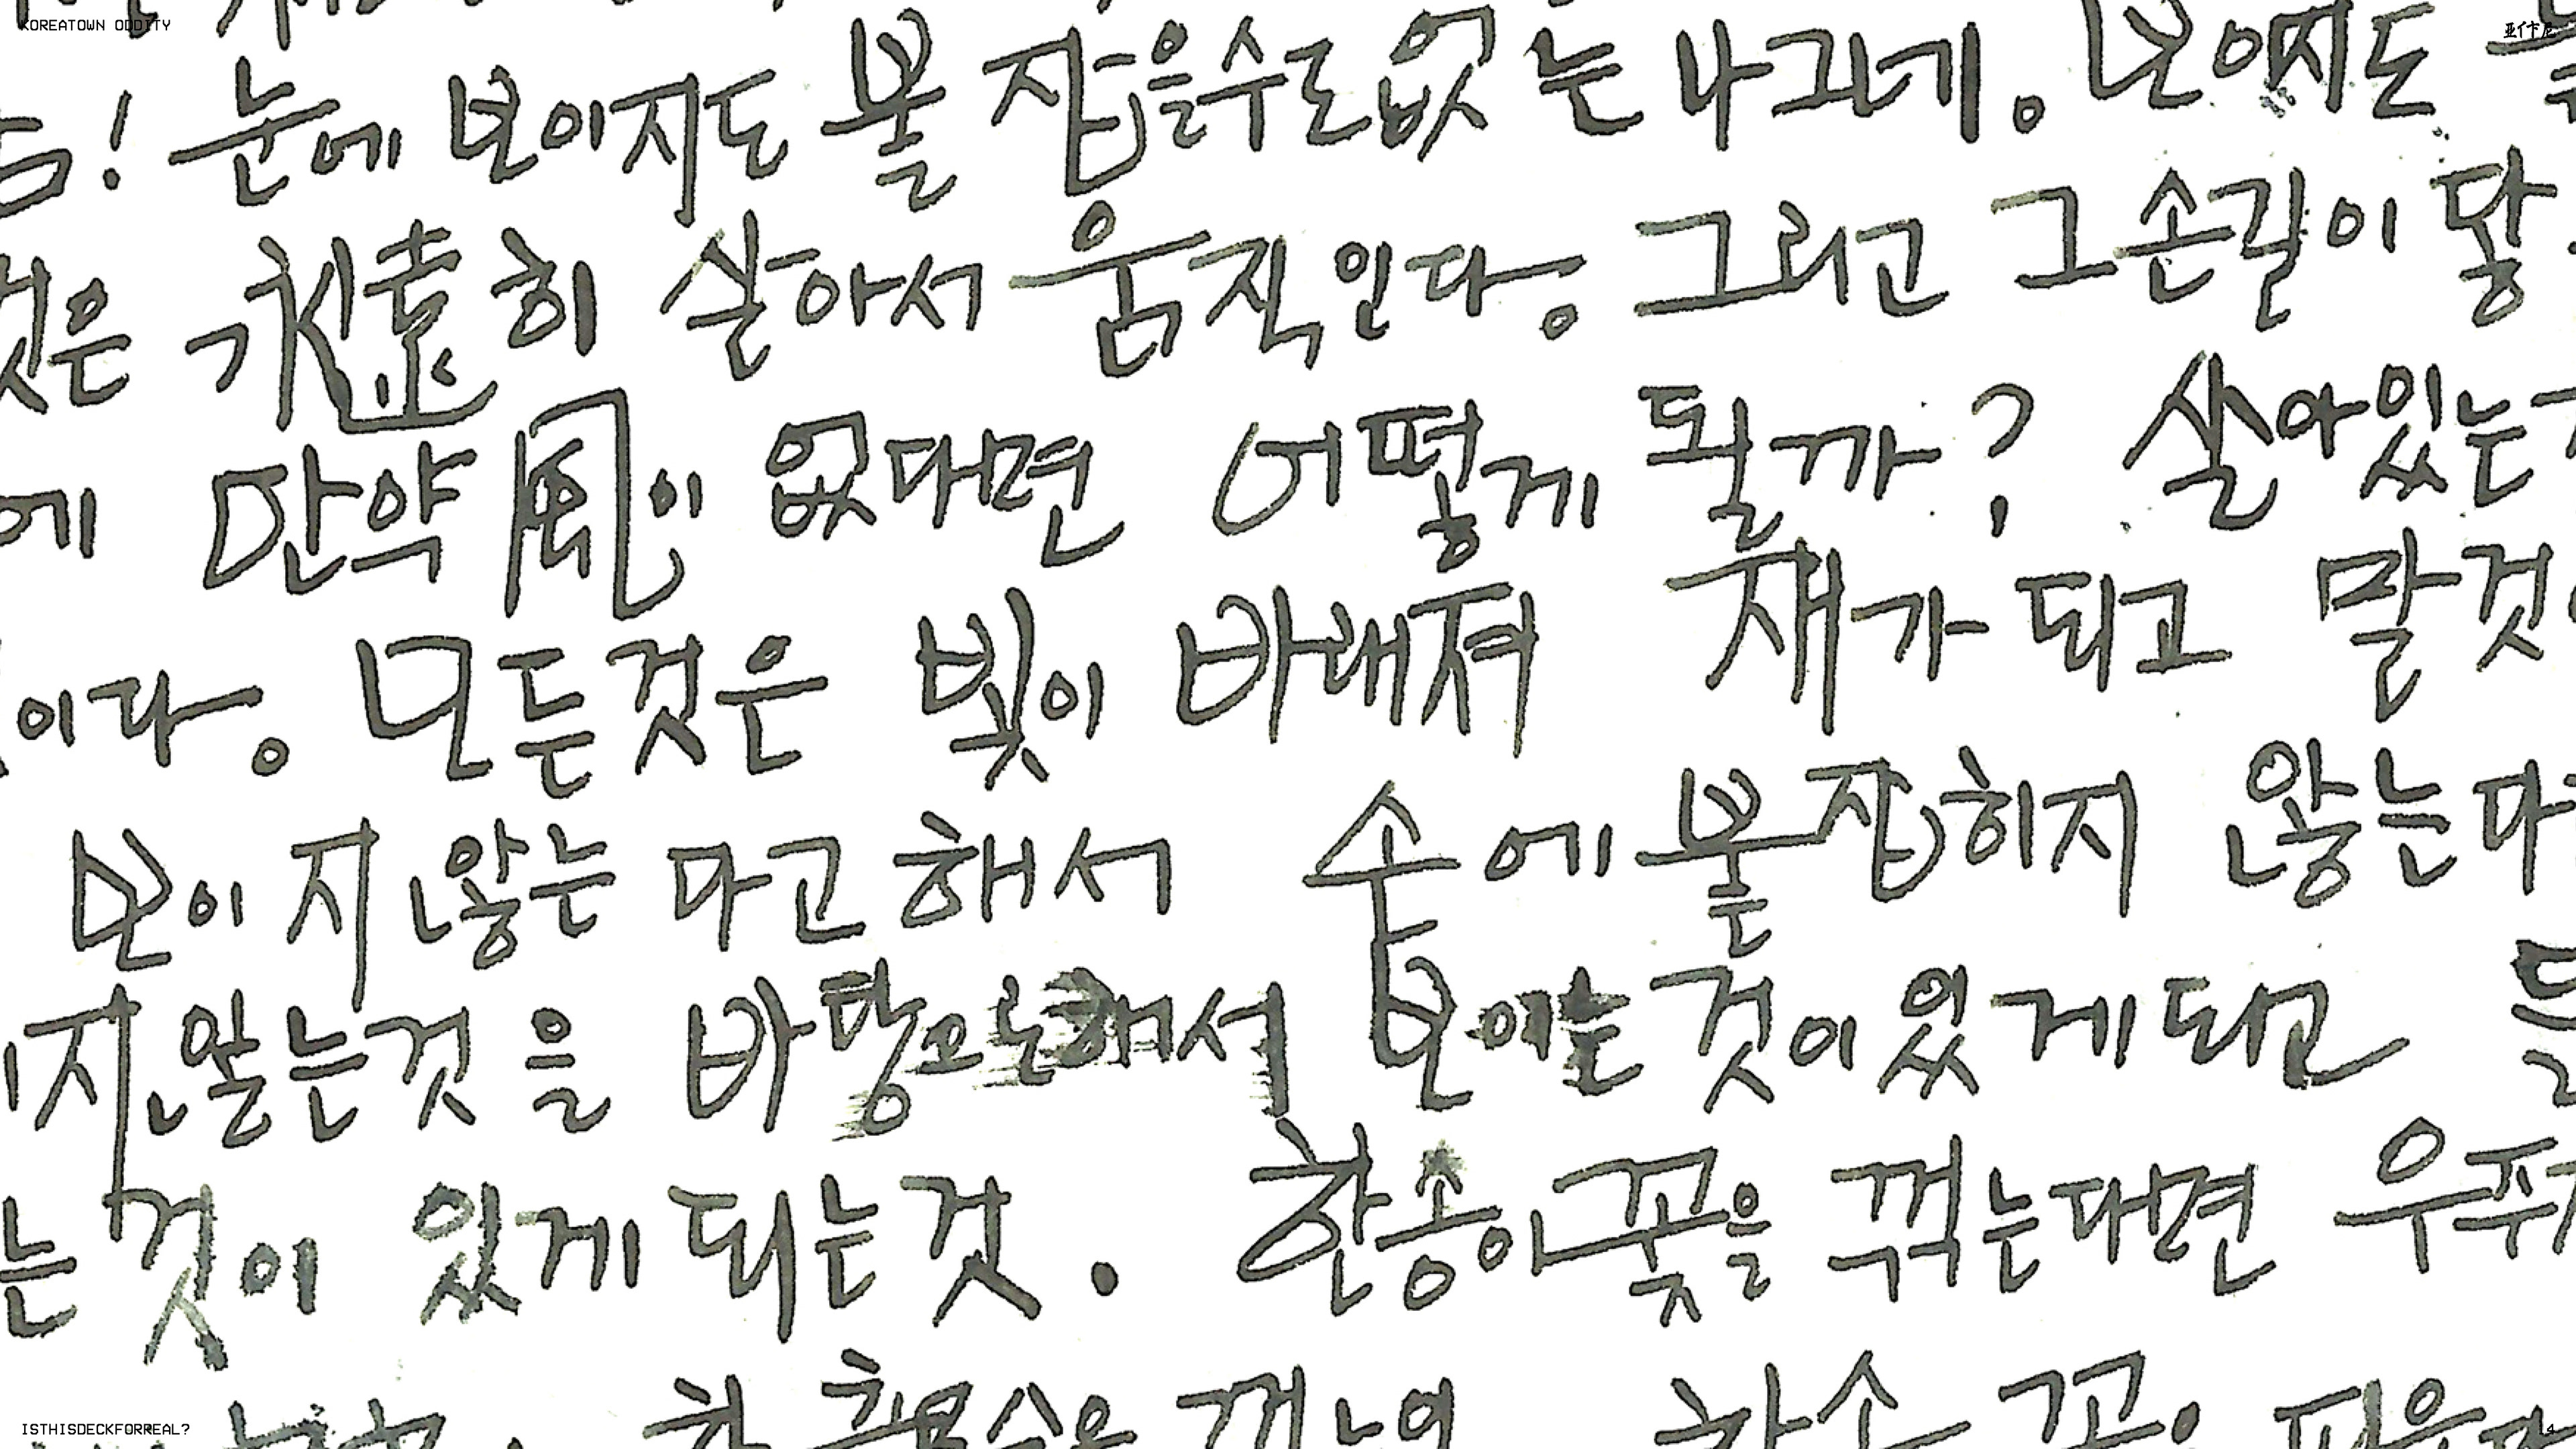 KOREATOWN ODDITY
! 눈에 보이지도 붙 잡을수도 없 는 나그네。 보이지도
것은 永遠히 살아서 움직인다。 그리고 그 손길이 닿
에 만약 風이 없다면 어떻게 될까? 살아있는
이다。 모든것은 빛이 바래져 재가 되고 말것
보이 지 않는 다고 해서 손에 붙잡히지 않는다
지 않는것 을 바탕으로해서 보이는 것이 있게 되고
는 것이 있게 되는것. 한송이 꽃을 꺾는다면 우주
ISTHISDECKFORREAL?
4